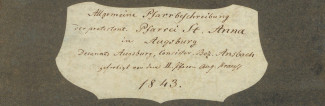 Allgemeine Pfarrbeschreibung
der protestant. Pfarrei St. Anna
in Augsburg
Decanats Augsburg, Consistor. Bez. Ansbach
gefertigt von dem II. Pfarrer Aug.
1843.